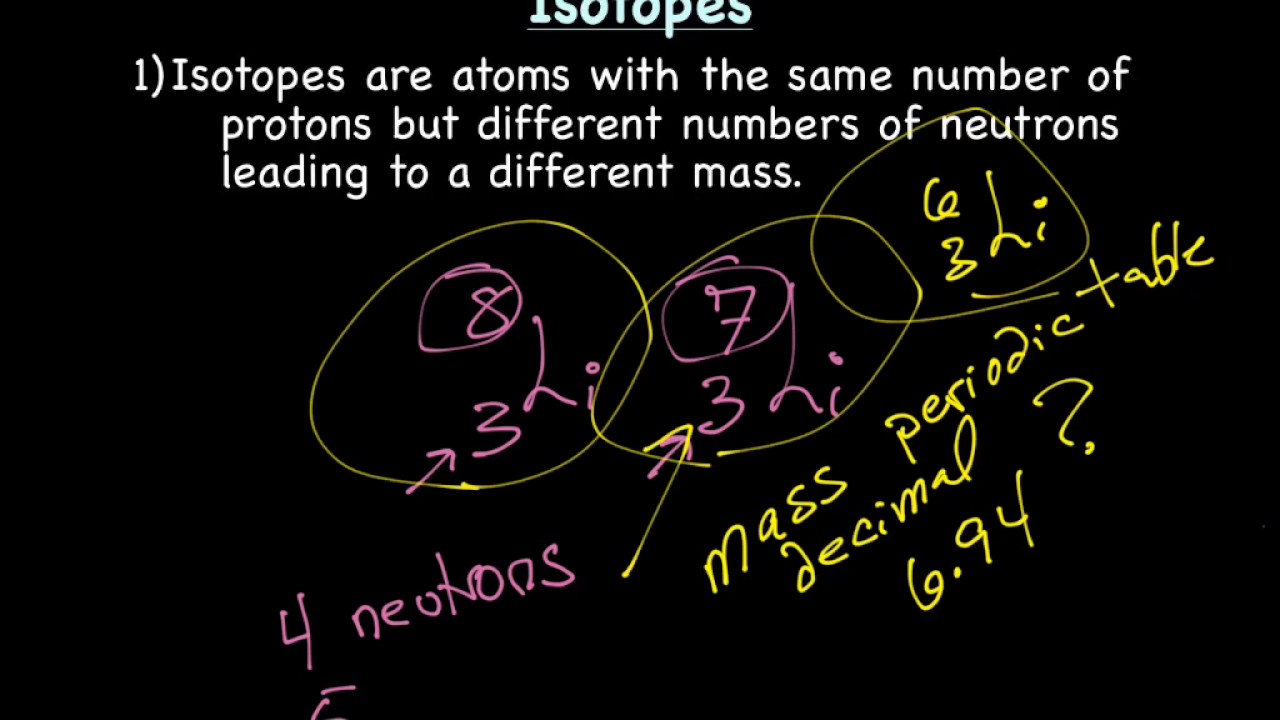 Isotopes
1) Isotopes are atoms with the same number of
protons but different numbers of neutrons
leading to a different mass.
6
3 Li
8
3 Li
7
3 Li
mass periodic table
decimal ?
6.94
4 neutrons
5